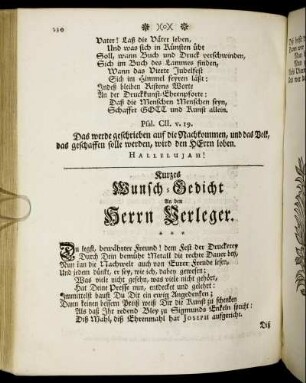 Vater! Laß die Väter leben,
Und was sich in Künsten übt
Soll, wann Buch und Druck verschwinden,
Sich im Buch des Lammes finden,
Wann das Vierte Jubelfest
Sich im Himmel feyren läßt:
Indeß bleiben Restens Worte
An der Druckkunst-Ehrenpforte:
Daß die Menschen Menschen seyn,
Schaffet GOTT und Kunst allein.
Psal. CII. v. 19.
Das werde geschrieben auf die Nachkommen, und das Volk,
das geschaffen solle werden, wird den HErrn loben.
HALLELUJAH!
Kurzes
Wunsch-Gedicht
An den
Herrn Verleger.
Du legst, bewährter Freund! dem Fest der Druckerey
Durch Dein bemüht Metall die rechte Dauer bey,
Nun kan die Nachwelt auch von Eurer Freude lesen,
Und jedem dünkt, er sey, wie ich, dabey gewesen;
Was viele nicht gesehn, was viele nicht gehört,
Hat Deine Presse nun, entdeket und gelehrt:
Inmittelst baust Du Dir ein ewig Angedenken;
Dann keinen bessern Preiß weiß Dir die Kunst zu schenken
Als daß Ihr redend Bley zu Sigmunds Enkeln spricht:
Diß Mahl, diß Ehrenmahl hat JOSEPH aufgericht.
Diß